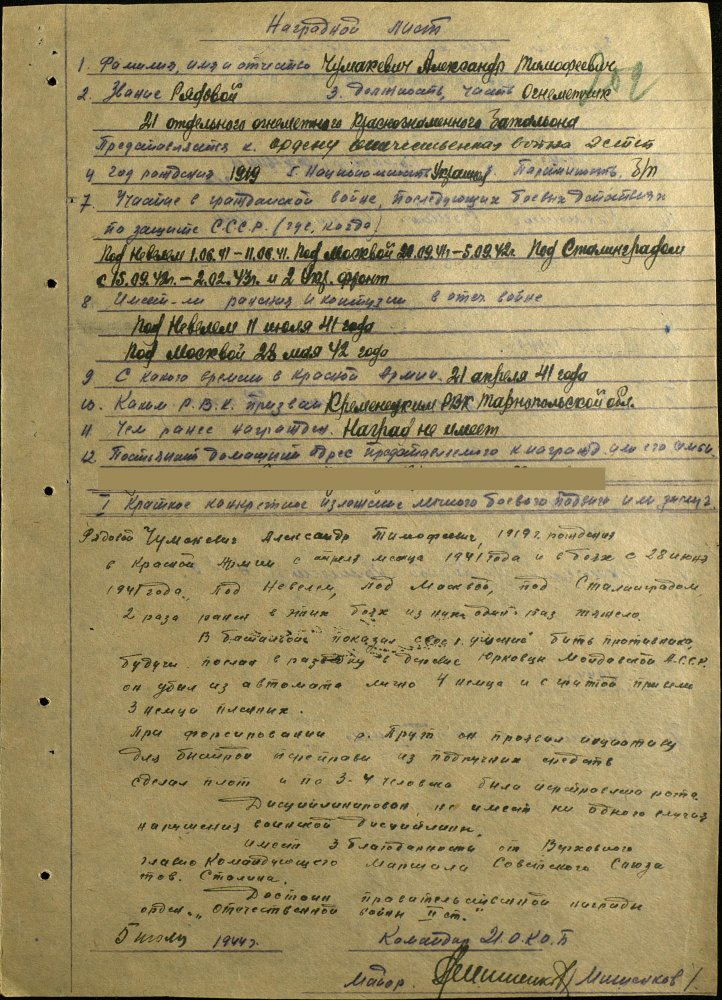 Наградной лист
1. Фамилия, имя и отчество Чумакевич Александр Тимофеевич
2. Звание Рядовой 3. Должность, часть Огнеметчик
21 отдельного огнеметного Краснознаменного Батальона
Представляется к ордену отечественная война 2 степ
4 год рождения 1919 5. Национальность Украинец 6. Партийность б/п
7. Участие в гражданской войне, последующих боевых действиях
по защите С.С.С.Р. (где, когда)
Под Невелем 1.06.41-11.06.41. Под Москвой 09.41г-5.09.42г. Под Сталинградом
с 15.09.42г.-2.02.43г. и 2 Укр. фронт
8. Имеет-ли ранения и контузии в отеч. войне
Под Невелем 11 июля 41 года
Под Москвой 28 мая 42 года
9 С какого времени в Красной Армии 21 апреля 41 года
10. Каким Р.В.К. призван Кременецким РВК Тарнопольской обл.
11 Чем ранее награжден. Наград не имеет
12 Постоянный домашний адрес представляемого к награжд. или его семьи
I Краткое конкретное изложение личного боевого подвига или заслуг.
Рядовой Чумакевич Александр Тимофеевич, 1919 г. рождения
в Красной Армии с апреля месяца 1941 года и в боях с 28 июня
1941 года. Под Невелем, под Москвой, под Сталинградом
2 раза ранен в этих боях из них один раз тяжело.
В батальоне показал свое умение бить противника,
будучи послан в разведку в деревне Юрковцы Молдавской А.С.С.Р.
он убил из автомата лично 4 немца и с группой привели
3 немца пленных.
При форсировании р. Прут он проявил инциативу
для быстрой переправы из подручных средств
сделал плот и по 3-4 человека была переправлена рота
Дисциплинирован, не имеет ни одного случая
нарушения воинской дисциплины.
имеет 3 благодарности от Верховного
главно Командующего Маршала Советского Союза
тов. Сталина.
Достоин правительственной награды
орден „Отечественной войны II ст."
5 июля 1944 г. Командир 21.О.К.О.Б
Майор